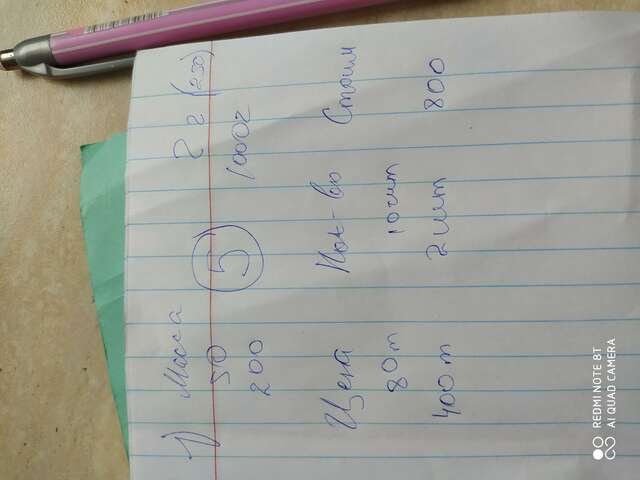 1) Масса ? г (250)
50 (5) 1000г
200
Цена Кол-во Стоим
80т 10шт
400т 2шт 800
REDMI NOTE 8T
AI QUAD CAMERA